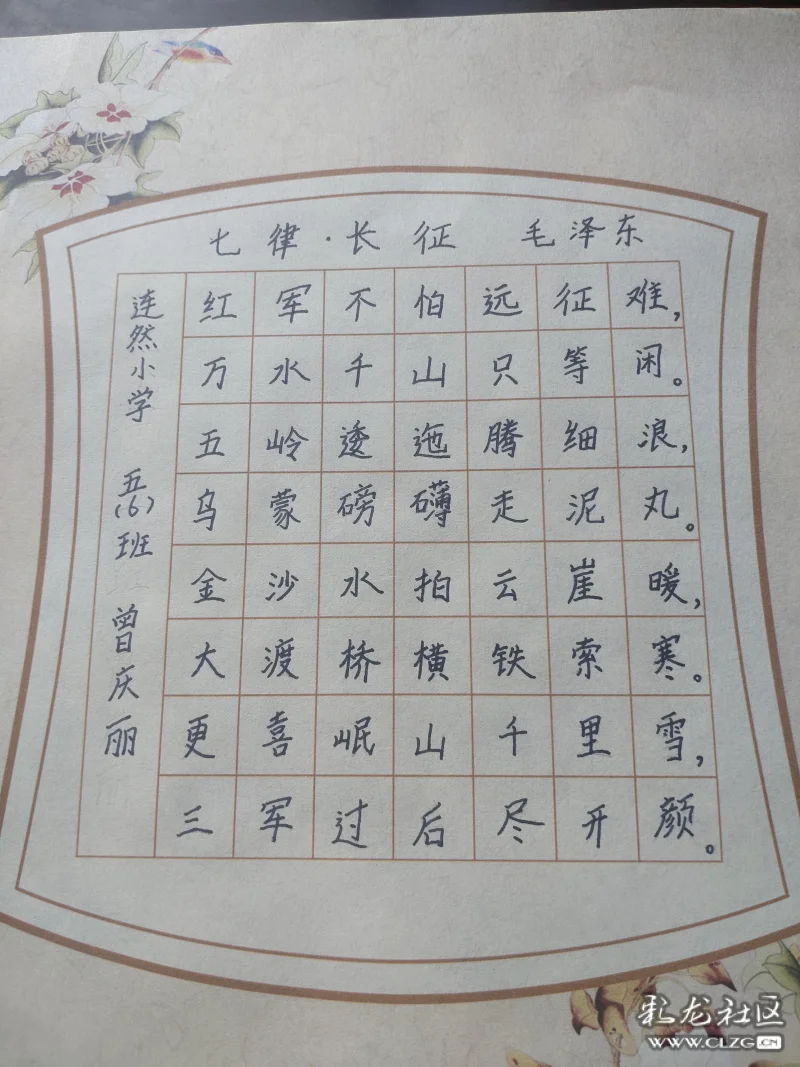 七律·长征 毛泽东
红军不怕远征难,
万水千山只等闲。
五岭逶迤腾细浪,
乌蒙磅礴走泥丸。
金沙水拍云崖暖,
大渡桥横铁索寒。
更喜岷山千里雪,
三军过后尽开颜。
连然小学 五(6)班 曾庆丽
彩龙社区
WWW.CLZG.CN